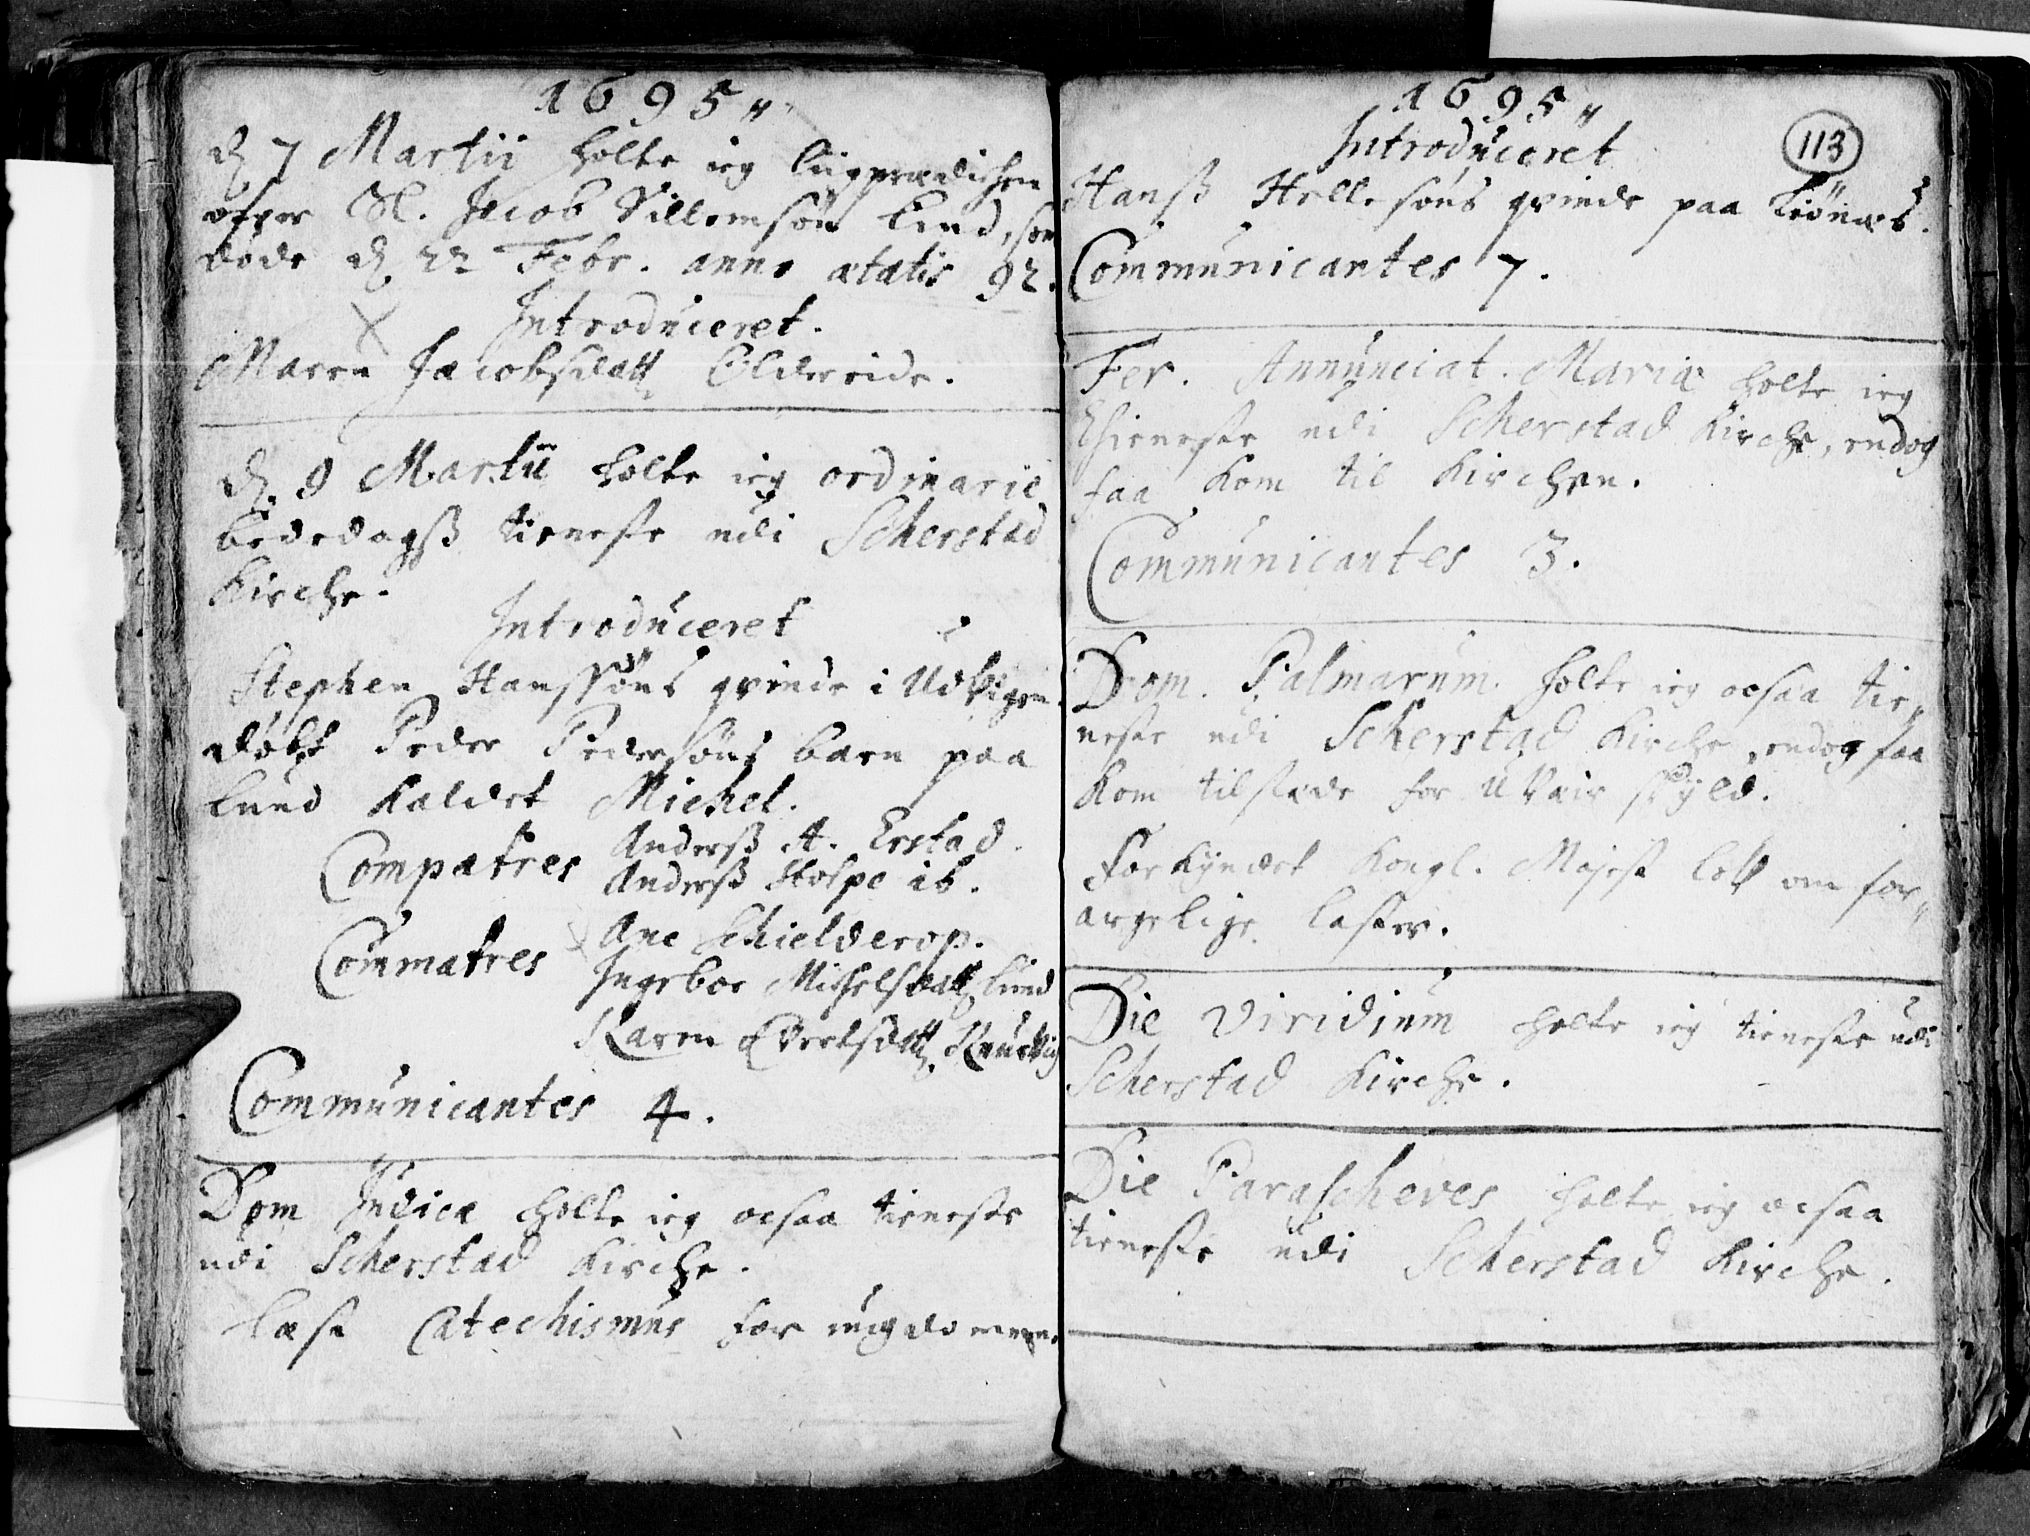 1695
d. 7 Martii holte ieg liigprædichen
ofver Sl. Jacob Villemsøn Lund, som
døde d. 22 Febr. anno ætatis 92.
Introduceret.
Maren Jacobsdatt Oldereide.
d. 9 Martii holte ieg ordinarie
bededagsß tieneste udi Scherstad
Kirche.
Introduceret
Stephen Hanssøns qvinde i Udvigen
døbt Peder Pedersøns barn paa
Lund kaldet Michel.
Compatres Anderß A. Erstad.
Anderß Stolpe ib.
Commatres Ane Schielderop.
Ingebor Michelsdatt Lund
Karen Evertsdatt
Communicantes 4.
Dom Judica holte ieg ocsaa tieneste
udi Scherstad Kirche.
læst Catechismus for ungdommen.
1695
113
Introduceret
Hanß Hellesøns qvinde paa
Communicantes 7.
Fer. Annunciat. Mariæ holte ieg
Thieneste udi Scherstad Kirche, endog
faa kom til Kirchen.
Communicantes 3.
Dom. Palmarum holte ieg ocsaa tie„
neste udi Scherstad Kirche, endog faa
kom tilstæde for uvair skyld.
Forkyndet Kongl. Majest lov om for„
argelige laster.
Die Viridium holte ieg tieneste udi
Scherstad Kirche.
Die Parascheves holte ieg ocsaa
tieneste udi Scherstad Kirche.